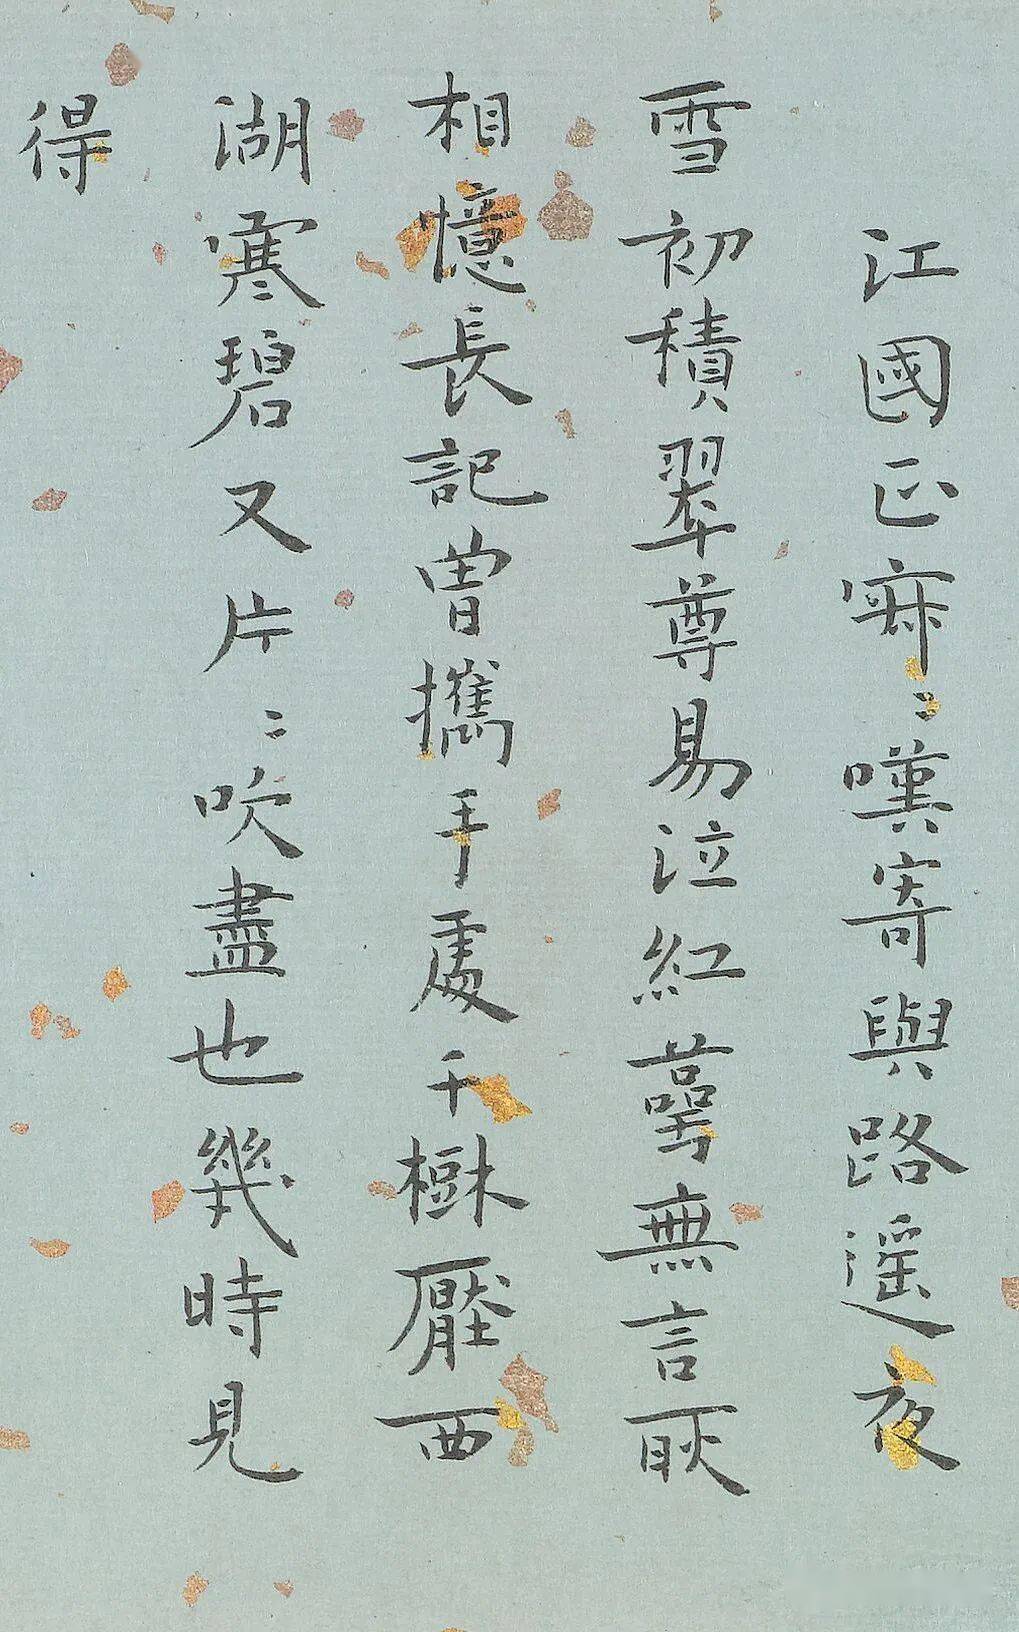 江國正寂〻嘆寄與路遥夜
雪初積翠尊易泣紅萼無言耿
相憶長記曾攜手處千樹壓西
湖寒碧又片〻吹盡也幾時見
得